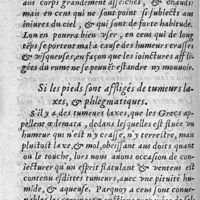 aux corps grandement affligés, & chauds:
mais en ceux qui ne sont point si subiects aux
iniures du ciel, & qui sont de forte habitude.
Lon en pourra bien vser, en ceux qui de long
tēps se portent mal à cause des humeurs crasses
& visqueuses, en façon que les ioinctures affli
gées du rume ne se peuuēt estandre ny mouuoir.
Si les pieds sont affligés de tumeurs la-
xes, & phlegmatiques.
S'il y a des tumeurs laxes, que les Grecs ap-
pellent œdemata, dedans lesquelles est fluée vne
humeur qui n'est ny crasse, ny terrestre, mau
plustost laxe & mol, obeissant aux doits quant
on le touche, lors nous auons occasion de con-
iecturer qu'un esprit flatulant & venteus est
contenu esdittes tumeurs, auec vne pituite hu-
mide, & aqueuse. Parquoy a ceux sont conue-